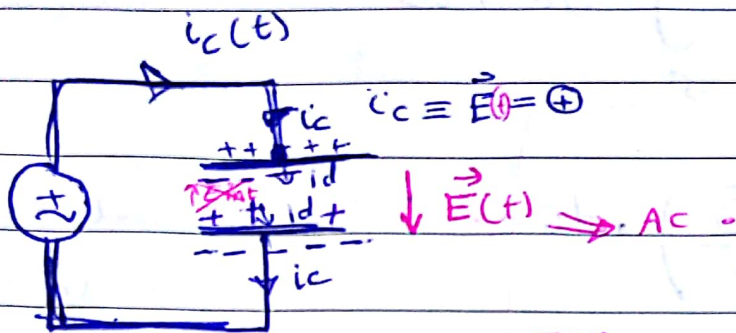 i_c(t)
i_c i_c ≡ E⃗(t) = ⊕
+ + + + +
- - i_d
+ + i_d +
E⃗(t) ⇒ AC
- - - - - -
i_c